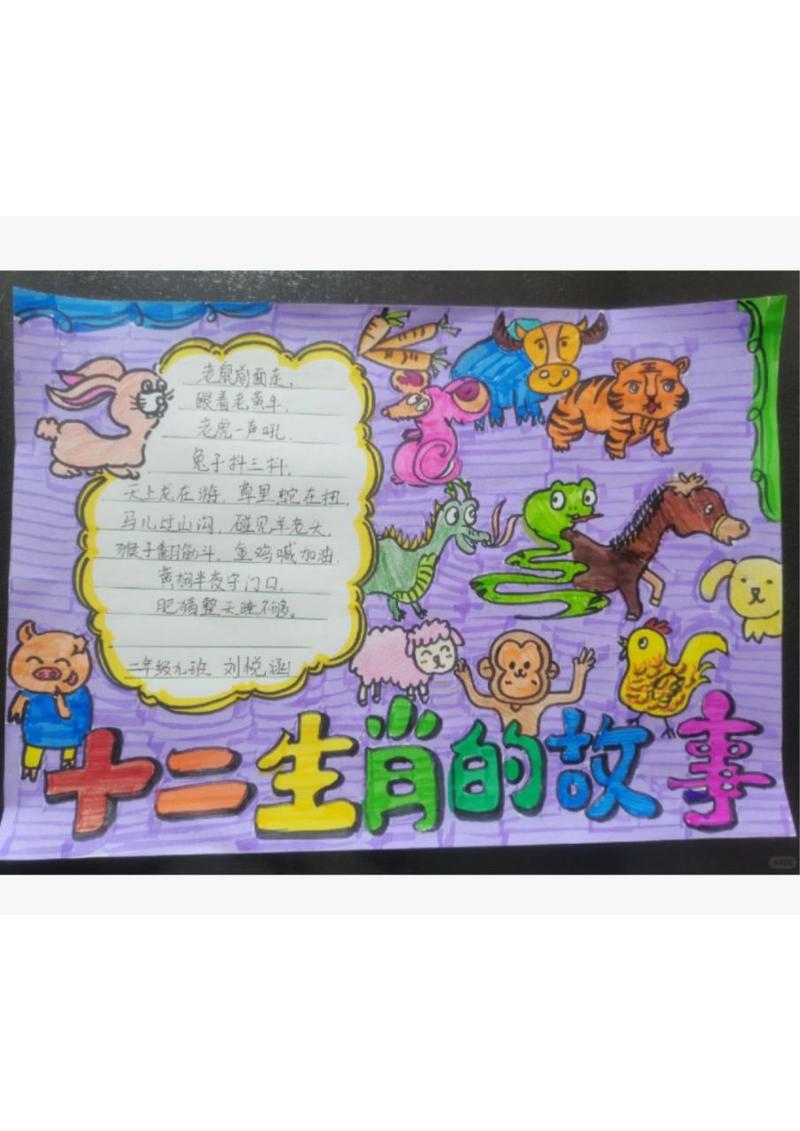 老鼠前面走,
跟着老黄牛,
老虎一声吼.
兔子抖三抖,
天上龙在游,草里蛇在扭,
马儿过山沟,碰见羊老头,
猴子翻筋斗,金鸡喊加油.
黄狗半夜守门口,
肥猪整天睡不够。
二年级九班 刘悦涵
王
十二生肖的故事